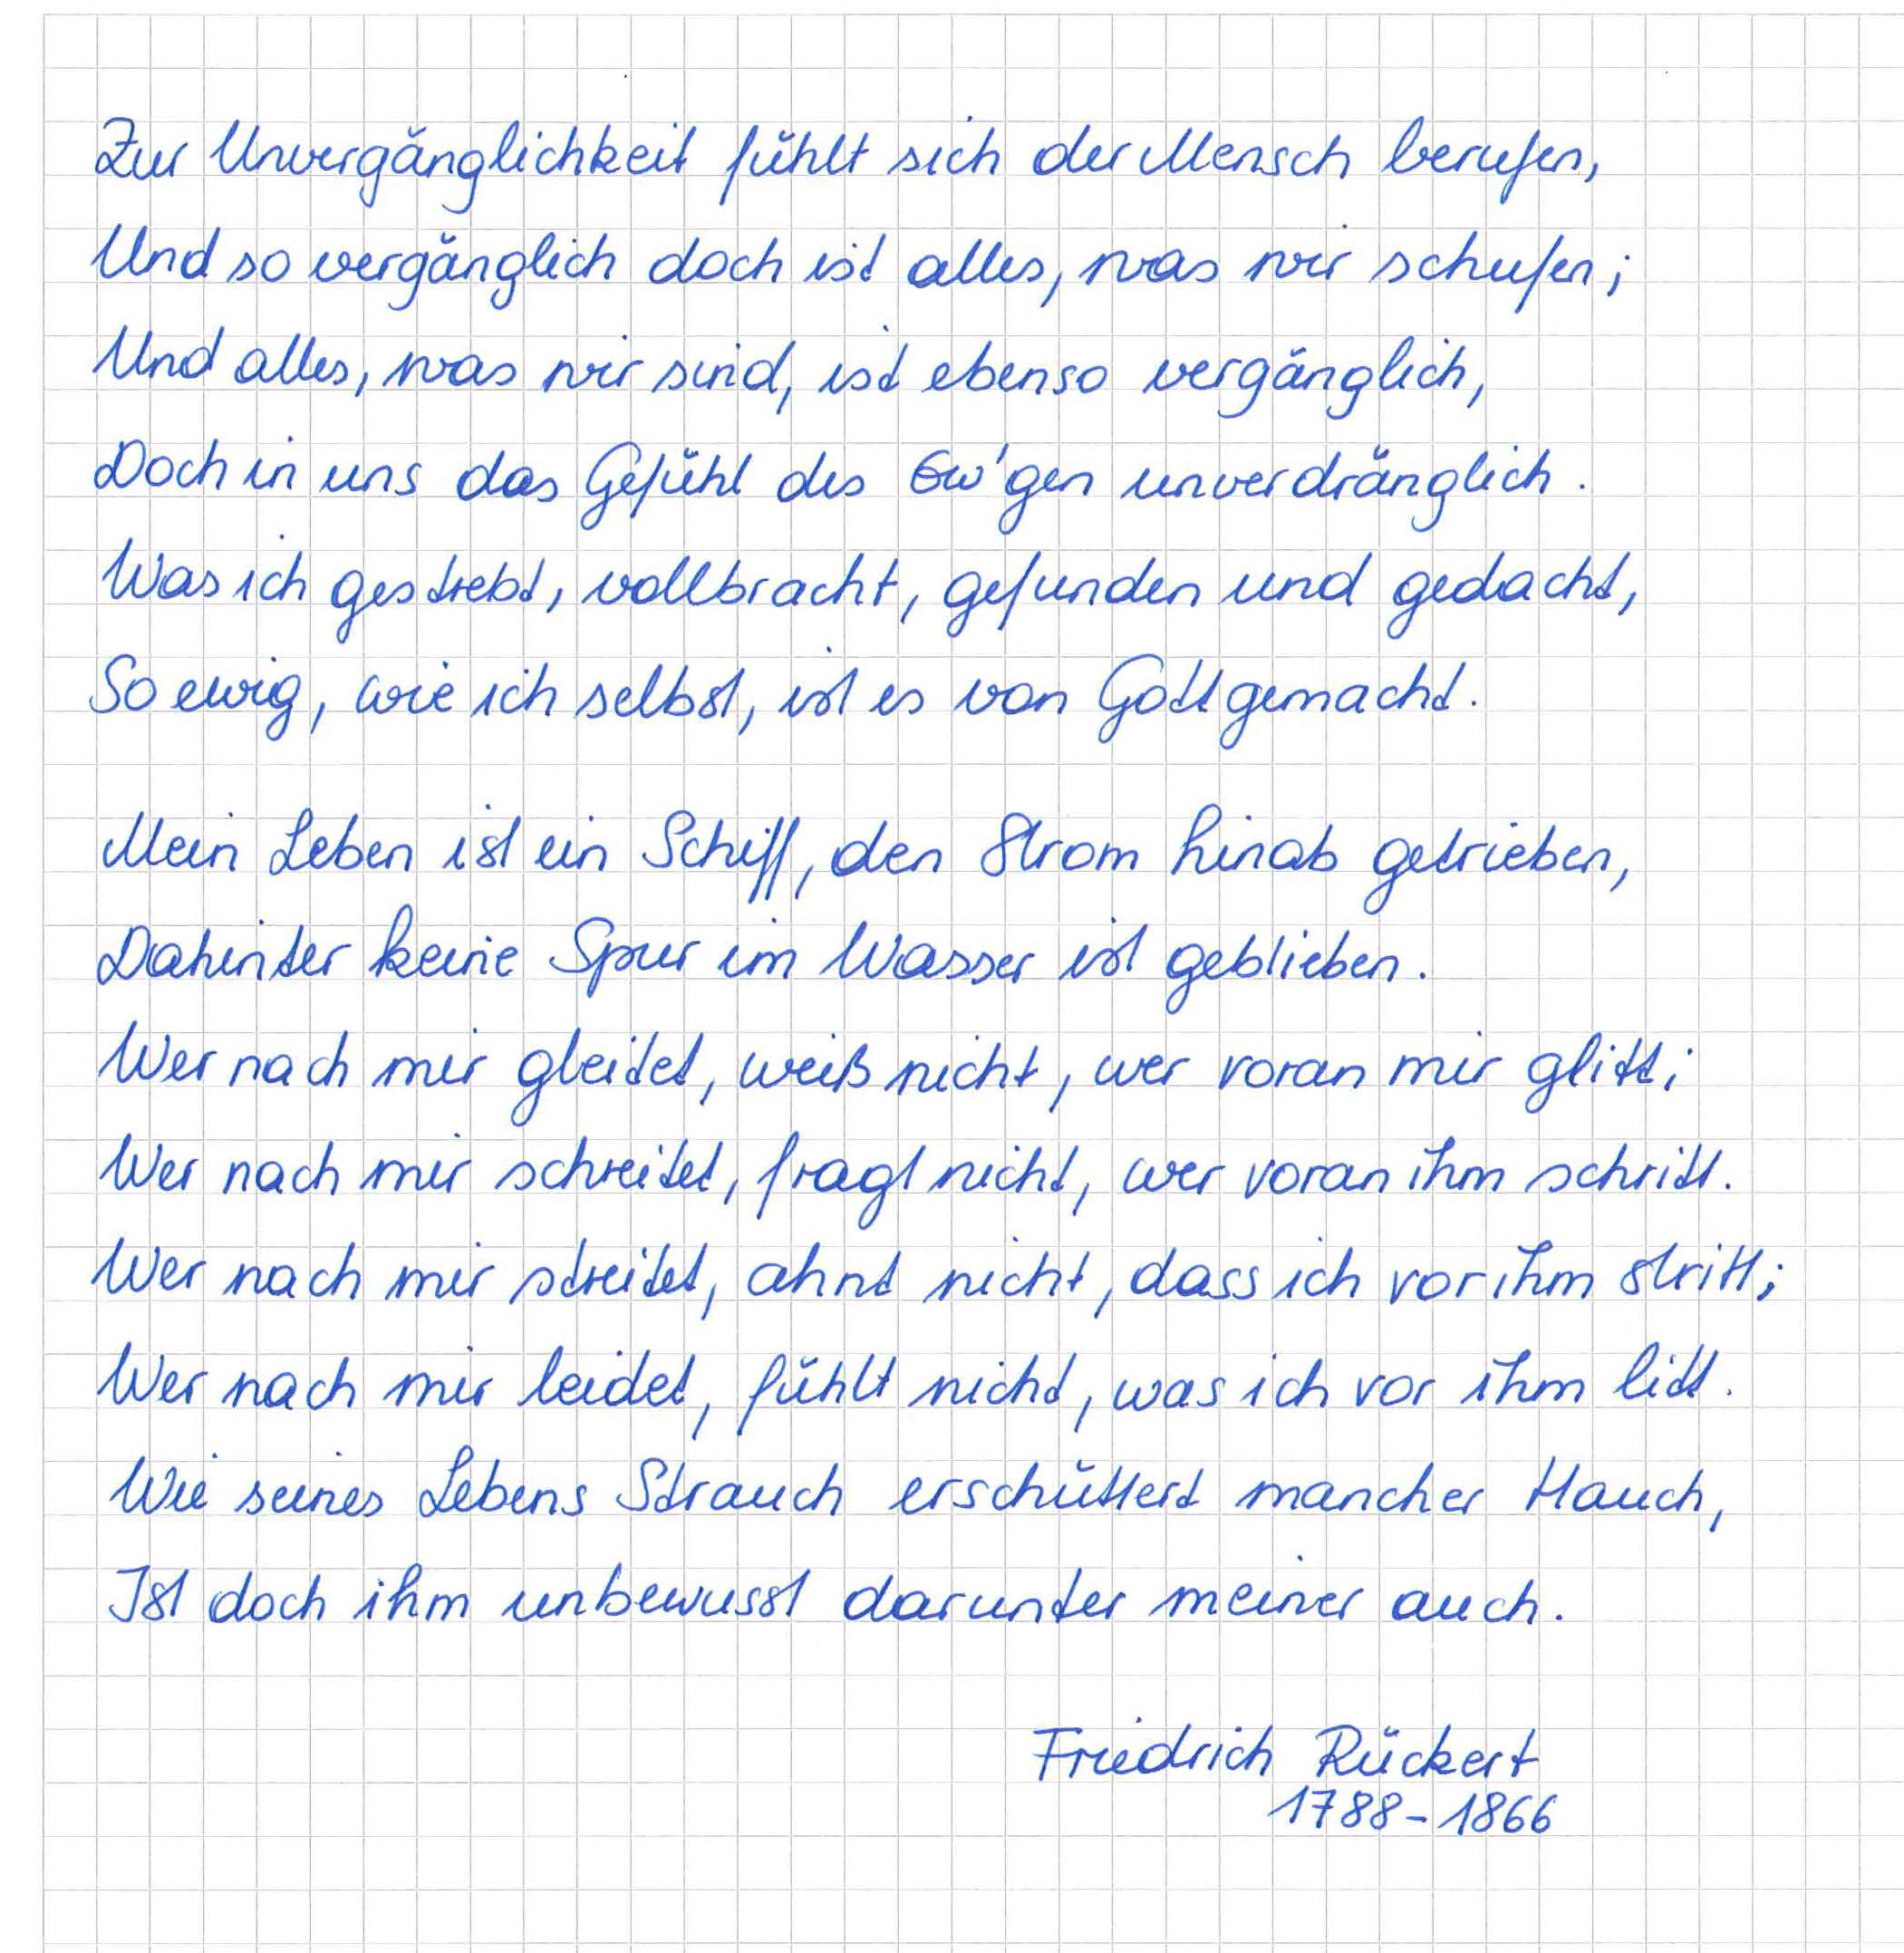 Zur Unvergänglichkeit fühlt sich der Mensch berufen,
Und so vergänglich doch ist alles, was wir schufen;
Und alles, was wir sind, ist ebenso vergänglich,
Doch in uns das Gefühl des Ew'gen unverdränglich.
Was ich gestrebt, vollbracht, gefunden und gedacht,
So ewig, wie ich selbst, ist es von Gott gemacht.
Mein Leben ist ein Schiff, den Strom hinab getrieben,
Dahinter keine Spur im Wasser ist geblieben.
Wer nach mir gleitet, weiß nicht, wer voran mir glitt;
Wer nach mir schreitet, fragt nicht, wer voran ihm schritt.
Wer nach mir streitet, ahnt nicht, dass ich vor ihm stritt;
Wer nach mir leidet, fühlt nicht, was ich vor ihm litt.
Wie seines Lebens Strauch erschüttert mancher Hauch,
Ist doch ihm unbewusst darunter meiner auch.
Friedrich Rückert
1788-1866